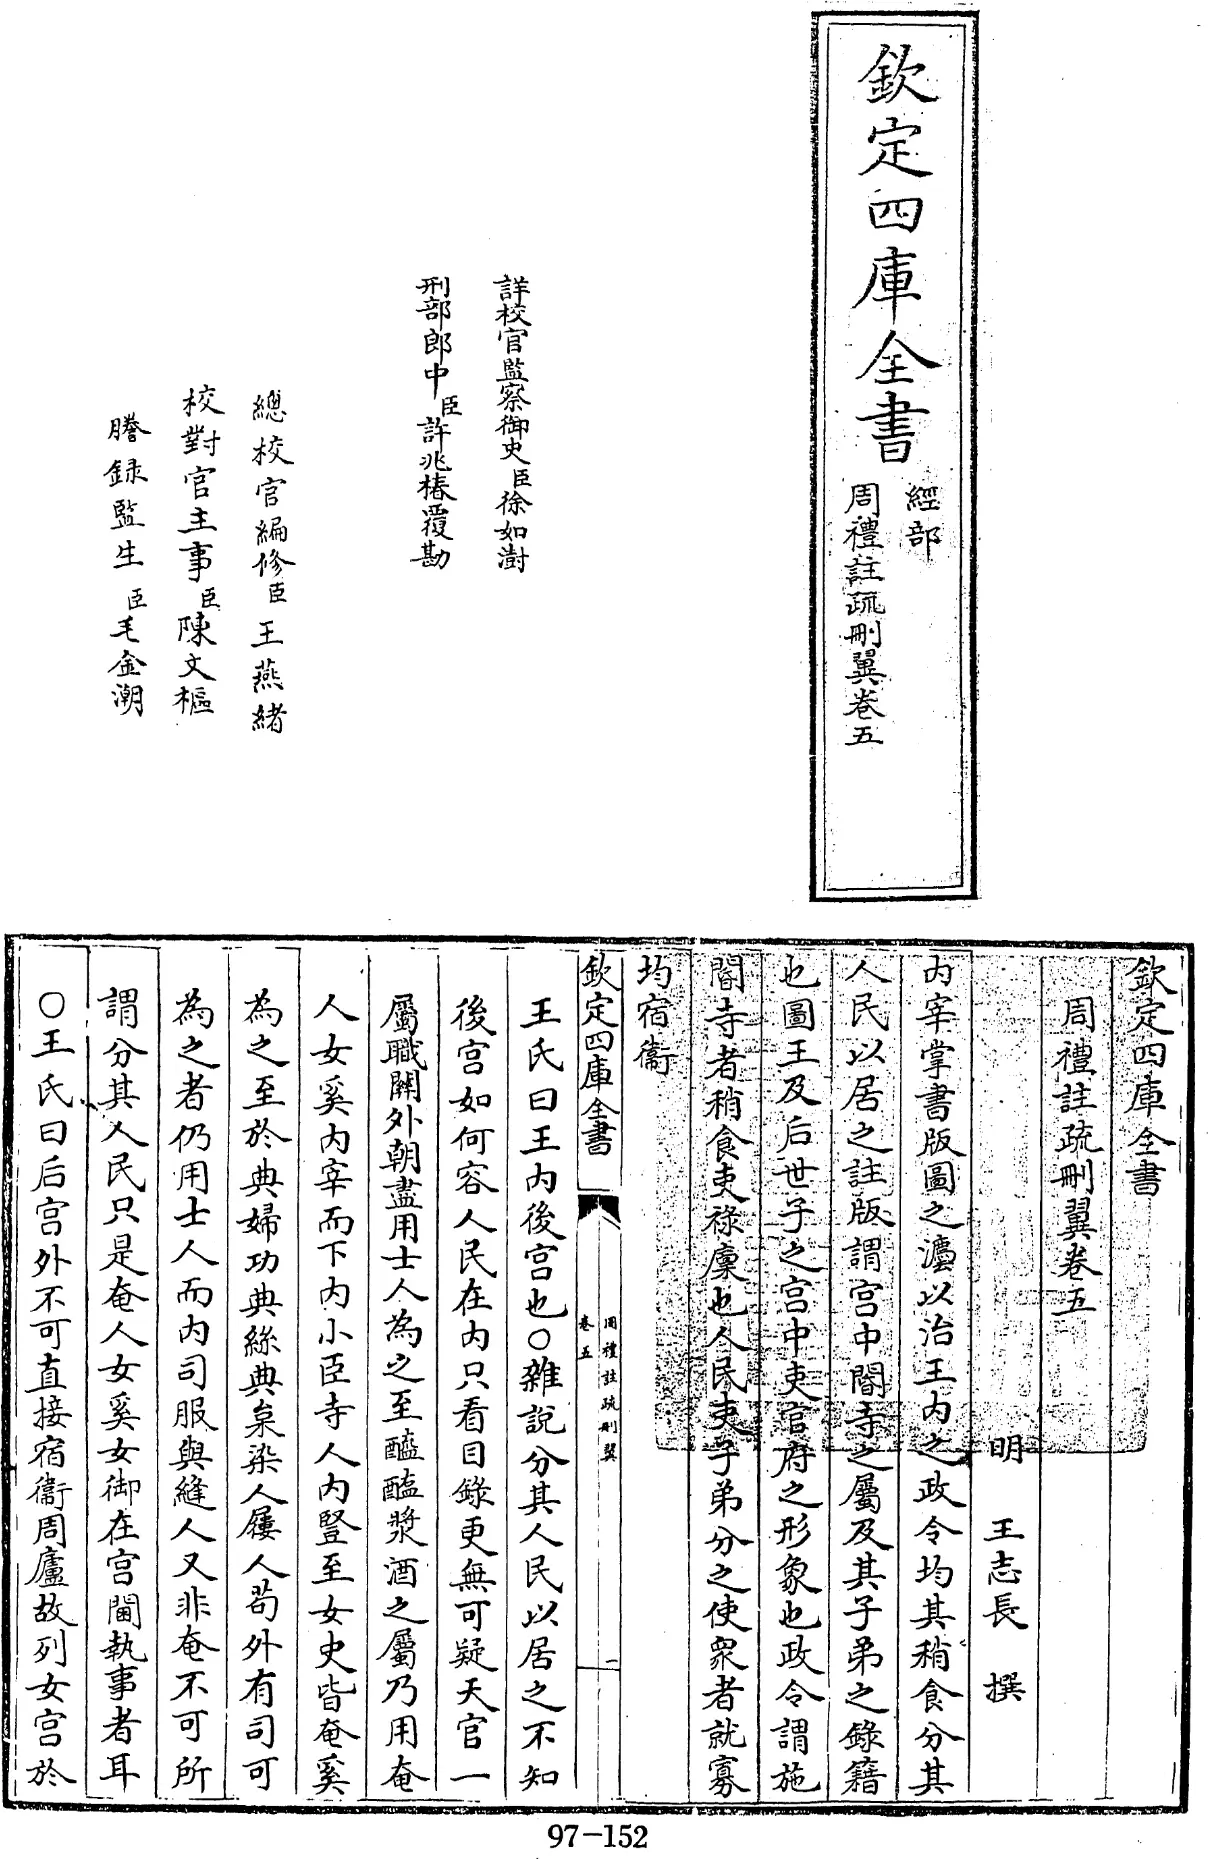 欽定四庫全書
經部
周禮註疏刪翼卷五
詳校官監察御史臣徐如澍
刑部郎中臣許兆椿覆勘
總校官編修臣王燕緒
校對官主事臣陳文樞
謄錄監生臣毛金潮
欽定四庫全書
周禮註疏刪翼卷五
明 王志長 撰
内宰掌書版圖之灋以治王内之政令均其稍食分其
人民以居之註版謂宫中閽寺之屬及其子弟之錄籍
也圖王及后世子之宫中吏官府之形象也政令謂施
閽寺者稍食吏祿廩也人民吏子弟分之使衆者就寡
均宿衞
欽定四庫全書
周禮註疏刪翼
卷五
一
王氏曰王内後宫也○雜説分其人民以居之不知
後宫如何容人民在内只看目錄更無可疑天官一
屬職關外朝盡用士人為之至醯醢漿酒之屬乃用奄
人女奚内宰而下内小臣寺人内豎至女史皆奄奚
為之至於典婦功典絲典枲染人屨人茍外有司可
為之者仍用士人而内司服與縫人又非奄不可所
謂分其人民只是奄人女奚女御在宫闈執事者耳
○王氏曰后宫外不可直接宿衞周廬故列女宫於
97-152